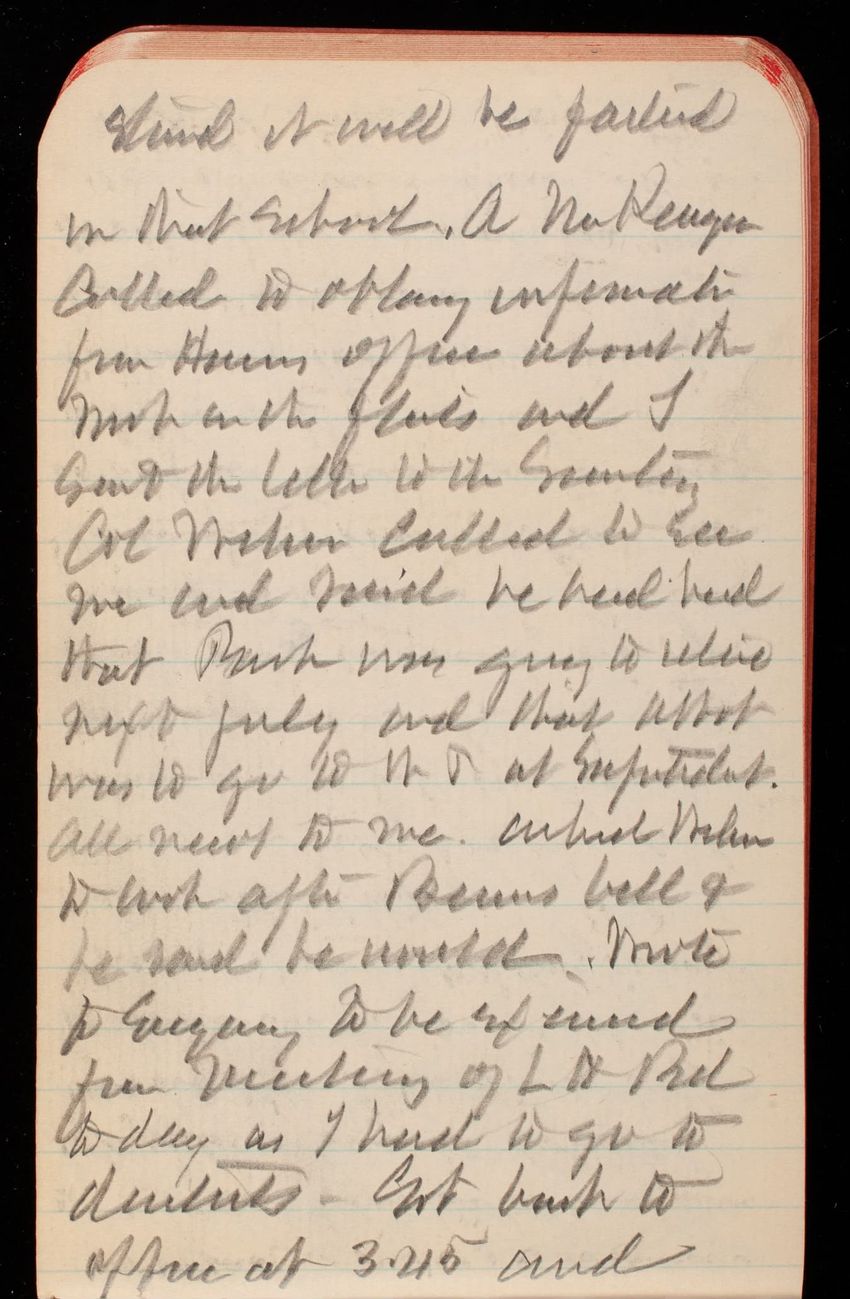 it will be
in that School. A
Called to obtain information
from office about the
work on the flats and I
Sent the letter to the Secretary
Col called to see
me and said he had heard
that was going to retire
next July and that Abbot
was to go to W D at
All news to me. asked
to look after bill &
he said he would. Wrote
to Gregory to be excused
from Meeting of L H Bd
to day as I had to go to
dentists - Got back to
office at 3.45 and